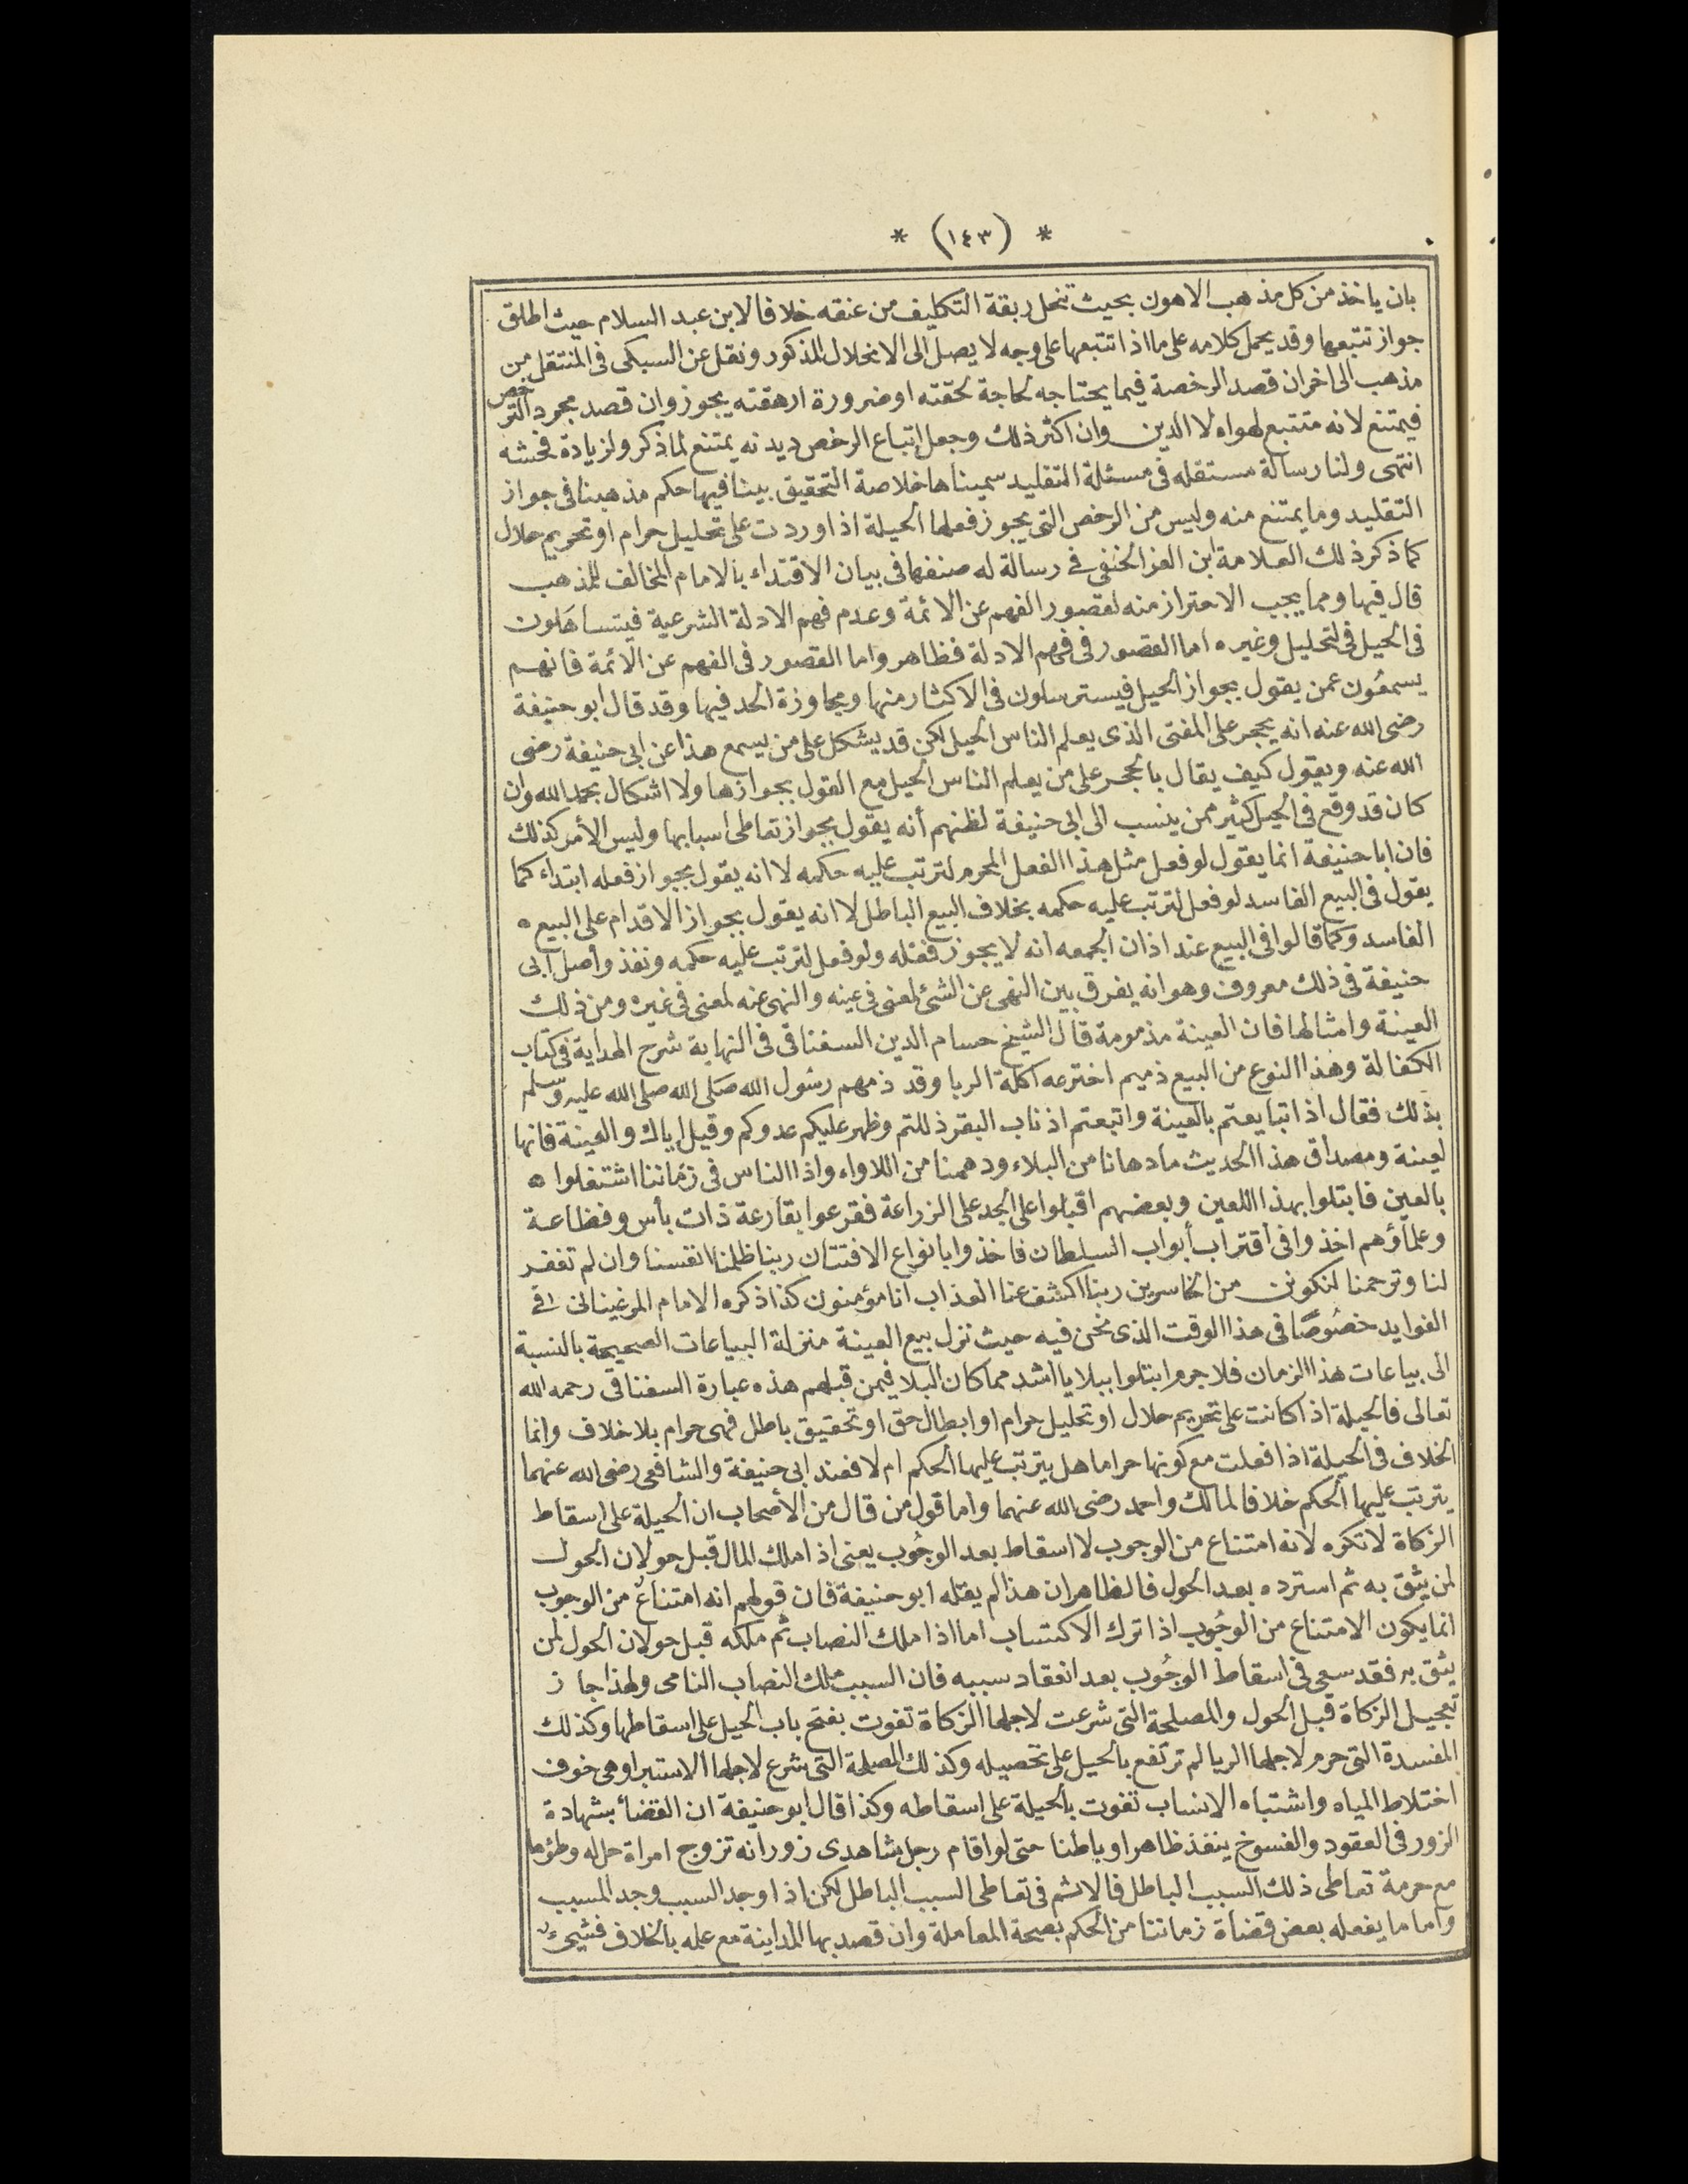 * (١٤٣) *
بان ياخذ من كل مذهب الاهون بحيث تنحل ربقة التكليف من عنقه خلافا لابن عبد السلام حيث اطلق
جواز تتبعها وقد يحمل كلامه على ما اذا تتبعها على وجه لا يصل الى الانحلال المذكور ونقل عن السبكى فى المنتقل من
مذهب الى اخران قصد الرخصة فيما يحتاجه لحاجة لحقته او ضرورة ارهقته يجوز وان قصد مجرد الترخص
فيمتنع لانه متتبع لهواه لا الدين وان اكثر ذلك وجعل إتباع الرخص ديدنه يمتنع لما ذكر ولزيادة فحشه
انتهى ولنا رسالة مستقله فى مسئلة التقليد سميناها خلاصة التحقيق بينا فيها حكم مذهبنا فى جواز
التقليد وما يمتنع منه وليس من الرخص التى يجوز فعلها الحيلة اذا وردت على تحليل حرام او تحريم حلال
كما ذكر ذلك العلامة ابن العز الحنفى فى رسالة له صنفها فى بيان الاقتداء بالامام المخالف للمذهب
قال فيها ومما يجب الاحتراز منه لقصور الفهم عن الائمة وعدم فهم الادلة الشرعية فيتساهلون
فى الحيل فى لتحليل وغيره اما القصور فى فهم الادلة فظاهر واما القصور فى الفهم عن الائمة فانهم
يسمعُون عمن يقول بجواز الحيل فيسترسلون فى الاكثار منها ومجاوزة الحد فيها وقد قال ابو حنيفة
رضى الله عنه انه يحجر على المفتى الذى يعلم الناس الحيل لكن قد يشكل على من يسمع هذا عن ابى حنيفة رضى
الله عنه ويقول كيف يقال بالحجر على من يعلم الناس الحيل مع القول بجوازها ولا اشكال بحمد الله وان
كان قد وقع فى الحيل كثير ممن ينسب الى ابى حنيفة لظنهم أنه يقول بجواز تعاطى اسبابها وليس الأمر كذلك
فان ابا حنيفة انما يقول لو فعل مثل هذا الفعل المحرم لترتب عليه حكمه لا انه يقول بجواز فعله ابتداء كما
يقول فى البيع الفاسد لو فعل لترتب عليه حكمه بخلاف البيع الباطل لا انه يقول بجواز الاقدام على البيع ه
الفاسد وكما قالوا فى البيع عند اذان الجمعه انه لا يجوز فعله ولو فعل لترتب عليه حكمه ونفذ وأصل ابى
حنيفة فى ذلك معروف وهو انه يفرق بين النهى عن الشئ لمعنى فى عينه والنهى عنه لمعنى فى غيره ومن ذلك
العينة وامثالها فان العينة مذمومة قال الشيخ حسام الدين السغناقى فى النهاية شرح الهداية فى كتاب
الكفالة وهذا النوع من البيع ذميم اخترعه اكلة الربا وقد ذمهم رسُول الله صَلى الله صلى الله عليه وسلم
بذلك فقال اذا تبايعتم بالعينة واتبعتم اذناب البقر ذللتم وظهر عليكم عدوكم وقيل اياك والعينة فانها
لعينة ومصداق هذا الحديث ما دهانا من البلاء ودهمنا من اللاواء واذا الناس فى زماننا اشتغلوا ه
بالعين فابتلوا بهذا اللعين وبعضهم اقبلوا على الجد على الزراعة فقرعوا بقارعة ذات بأس وفظاعة
وعلماؤهم اخذوا فى اقتراب أبواب السلطان فاخذوا بانواع الافتتان ربنا ظلمنا انفسنا وان لم تغفر
لنا وترحمنا لنكونن من الخاسرين ربنا اكشف عنا العذاب انا مؤمنون كذا ذكره الامام المرغينانى فى
الفوايد خصُوصًا فى هذا الوقت الذى نحن فيه حيث نزل بيع العينة منزلة البياعات الصحيحة بالنسبة
الى بياعات هذا الزمان فلا جرم ابتلوا ببلايا اشد مما كان البلا فيمن قبلهم هذه عبارة السغناقى رحمه الله
تعالى فالحيلة اذا كانت على تحريم حلال او تحليل حرام او ابطال حق او تحقيق باطل فهى حرام بلا خلاف وانما
الخلاف فى الحيلة اذا فعلت مع كونها حراما هل يترتب عليها الحكم ام لا فعند ابى حنيفة والشافعى رضى الله عنهما
يترتب عليها الحكم خلافا لمالك واحمد رضى الله عنهما واما قول من قال من الأصحاب ان الحيلة على اسقاط
الزكاة لا تكره لانه امتناع من الوجوب لا اسقاط بعد الوجُوب يعنى اذا ملك المال قبل حولان الحول
لمن يثق به ثم استرده بعد الحول فالظاهر ان هذا لم يقله ابو حنيفة فان قولهم انه امتناع من الوجوب
انما يكون الامتناع من الوجُوب اذا ترك الاكتساب اما اذا ملك النصاب ثم ملكه قبل حولان الحول لمن
يثق به فقد سعى فى اسقاط الوجُوب بعد انعقاد سببه فان السبب ملك النصاب النامى ولهذا جاز
تعجيل الزكاة قبل الحول والمصلحة التى شرعت لاجلها الزكاة تفوت بفتح باب الحيل على اسقاطها وكذلك
المفسدة التى حرم لاجلها الربا لم ترتفع بالحيل على تحصيله وكذلك المصلحة التى شرع لاجلها الاستبرا وهى خوف
اختلاط المياه واشتباه الانساب تفوت بالحيلة على اسقاطه وكذا قال ابو حنيفة ان القضأ بشهادة
الزور فى العقود والفسوخ ينفذ ظاهرا وباطنا حتى لو اقام رجل شاهدى زور انه تزوج امراة حل له وطؤها
مع حرمة تعاطى ذلك السبب الباطل فالاثم فى تعاطى السبب الباطل لكن اذا وجد السبب وجد المسبب
واما ما يفعله بعض قضاة زماننا من الحكم بصحة المعاملة وان قصد بها المداينة مع علمه بالخلاف فشيء